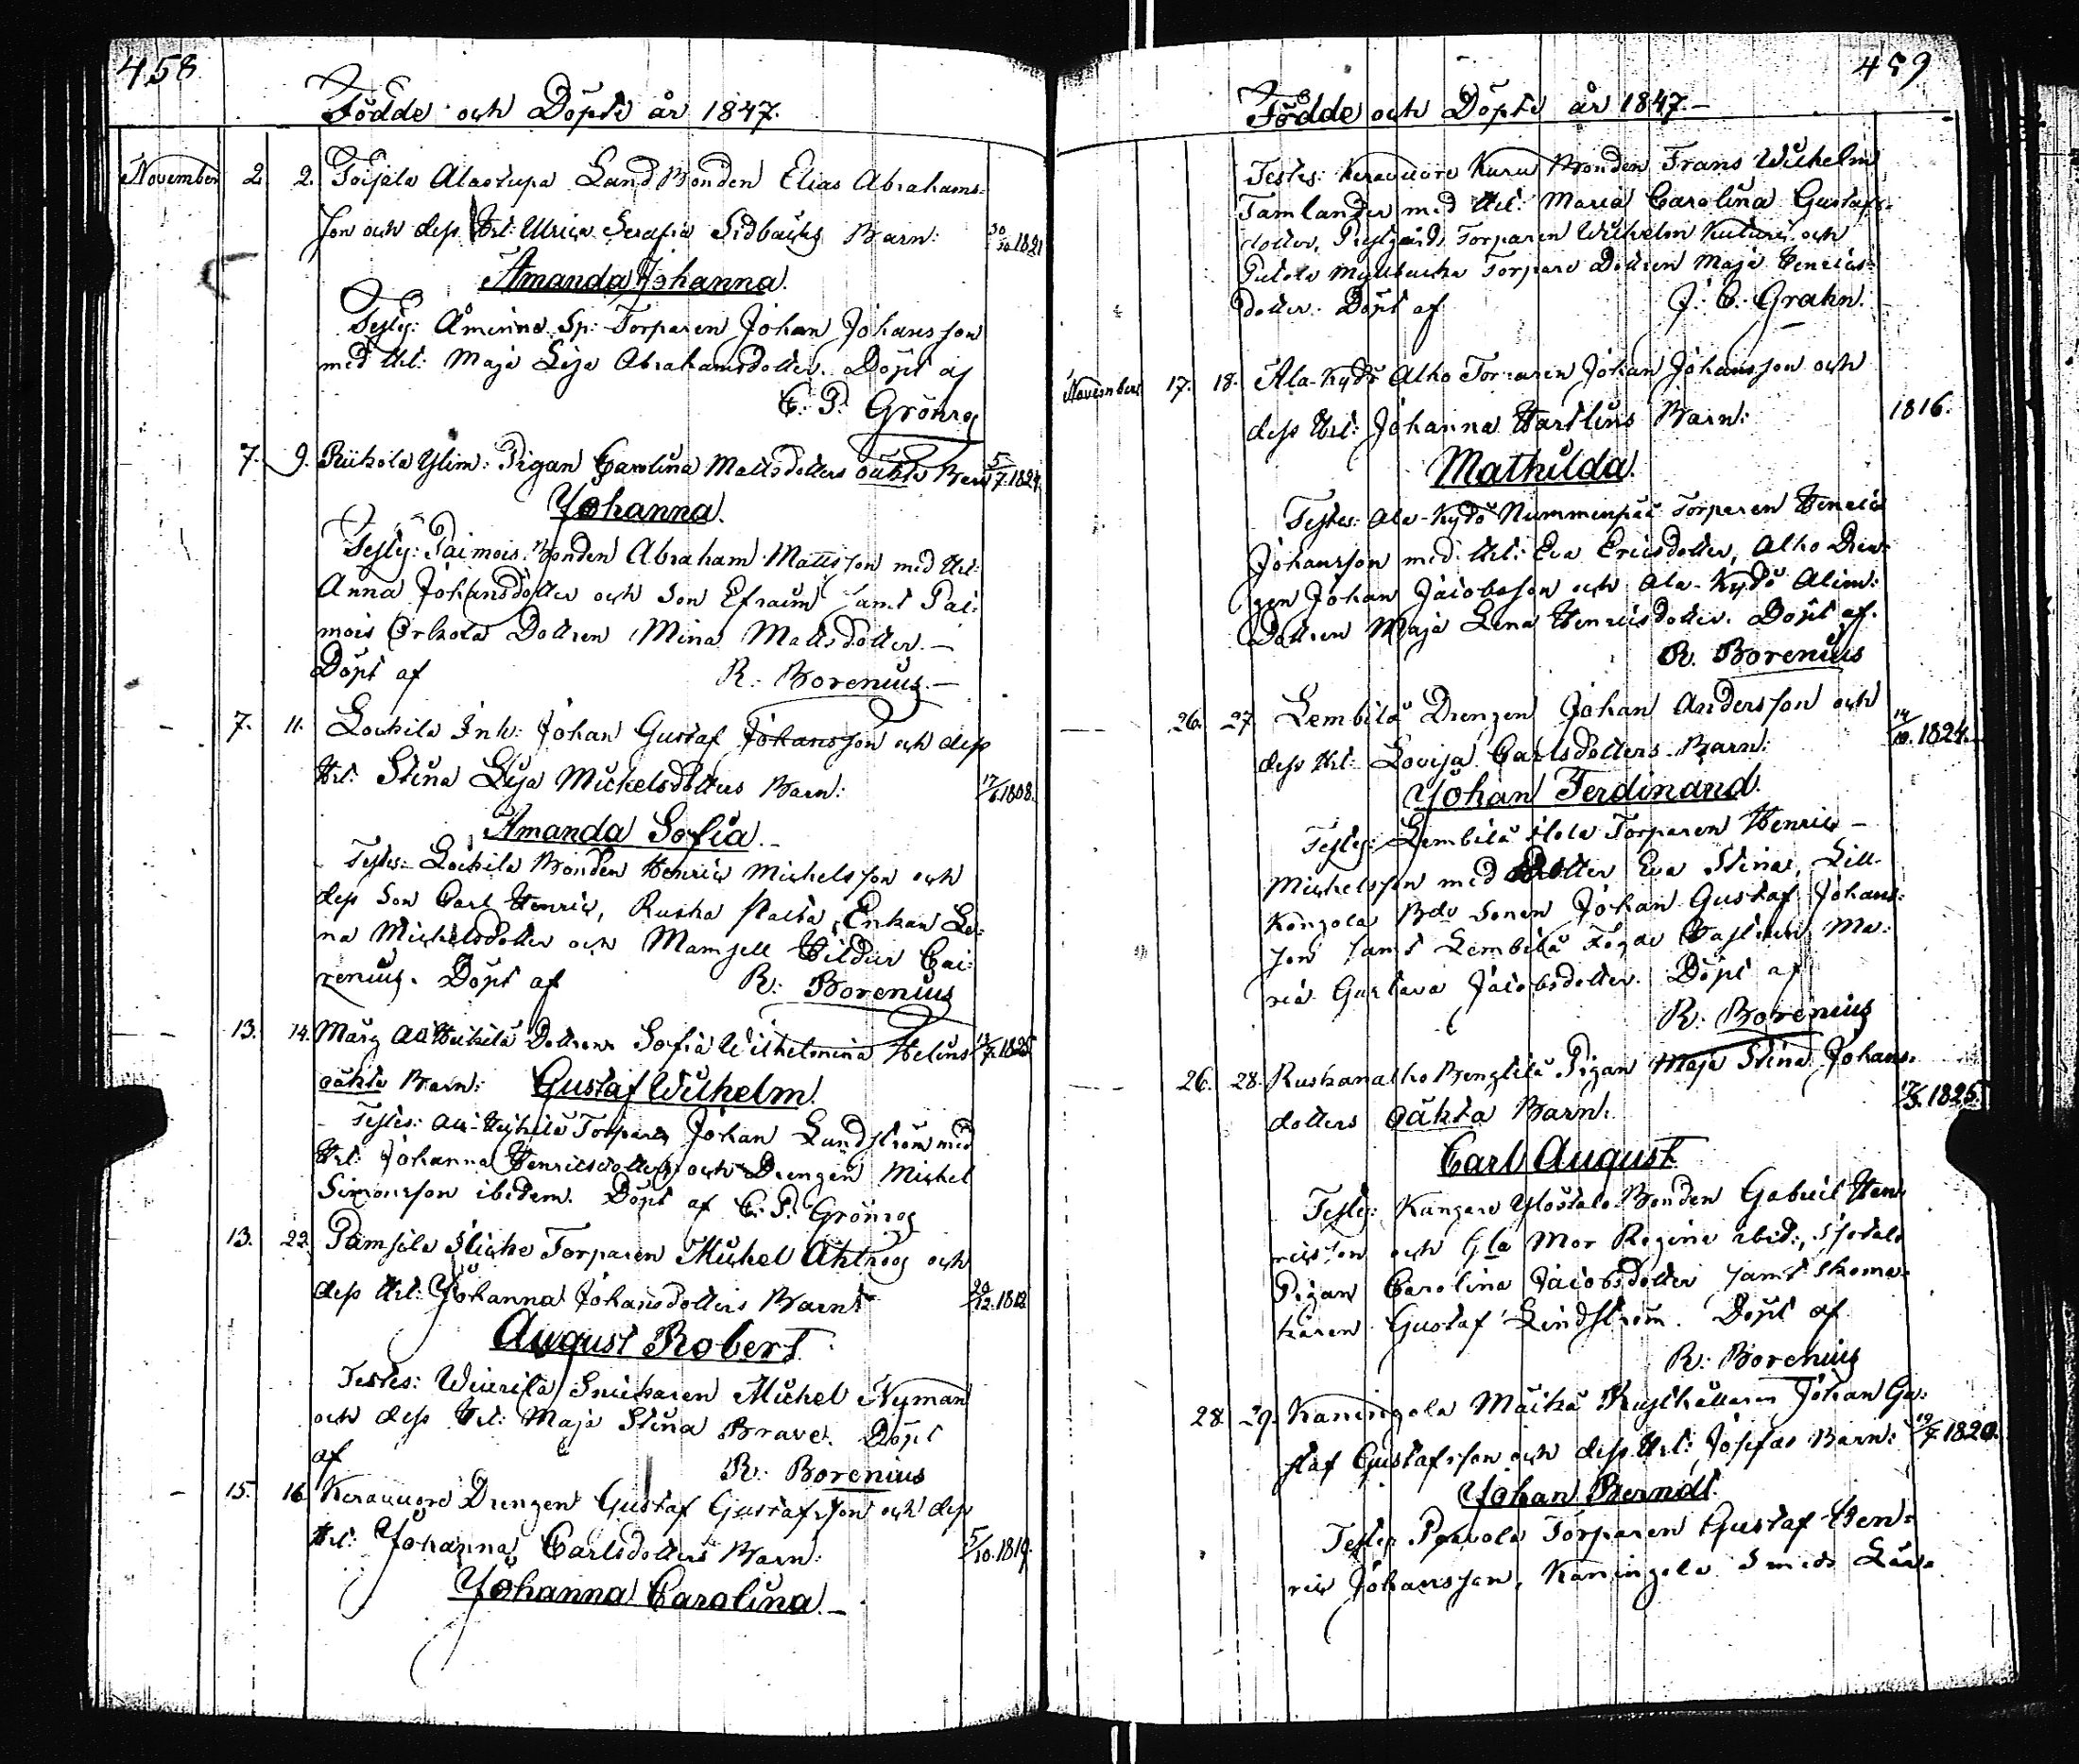 458
Födde och Döpte år 1847.
November 2. 2. Toijala Alastupa LandBonden Elias Abrahams-
son och dess Hu: Ulrica Serafia Sidbäcks Barn: 30/10.1821
Amanda Johanna.
Testes: Åminne Sp: Torparen Johan Johansson
med Hu: Maja Lisa Abrahamsdotter. Döpt af
C. P. Grönroos
7. 9. Pigan Carolina Mattsdotters oäkta Barn 5/7.1824.
Johanna.
Testes: Paimois Bonden Abraham Mattsson med Hu:
Anna Johansdotter och Son Efraim samt Pai-
mois Orkola Dottren Mina Mattsdotter.—
Döpt af R. Borenius.—
7. 11. Lockila Inh: Johan Gustaf Johansson och dess
Hu: Stina Lisa Michelsdotters Barn: 17/6.1808.
Amanda Sofia.—
Testes: Lockila Bonden Henric Michelsson och
dess Son Carl Henric, Ruska Enkan Le-
na Michelsdotter och Mamsell Hildur Cai-
renius. Döpt af R. Borenius
13. 14. Dottren Sofia Wilhelmina Helins 1825
oäkta Barn: Gustaf Wilhelm.
Testes: Torparen Johan Lundström med
Hu: Johanna Henricsdotter och Drengen Michel
Simonsson ibidem. Döpt af C. P. Grönroos
13. 22. Torparen Michel Ahlroos och
dess Hu: Johanna Johansdotters Barn: 20/12.1812
August Robert.
Testes: Snickaren Michel Nyman
och dess Hu: Maja Stina Brave. Döpt
af R. Borenius
15. 16. Keravuore Drengen Gustaf Gustafsson och dess
Hu: Johanna Carlsdotters Barn: 5/10.1819.
Johanna Carolina.—
459
Födde och Döpte år 1847.—
Testes: Keravuore Kuru Bonden Frans Wilhelm
Tamlander med Hu: Maria Carolina Gustafs-
dotter, Prestgårds Torparen Wilhelm och
Torpare Dottren Maja Henrics-
dotter. Döpt af J. C. Grahn.
November 17. 18. Ala-Kydö Alho Torparen Johan Johansson och
dess Hu: Johanna Hartlins Barn: 1816.
Mathilda.
Testes: Ala-Kydö Nummenpää Torparen Henric
Johansson med Hu: Eva Ericsdotter, Alho Dren-
gen Johan Jacobsson och Ala-Kydö Alim:
Dottren Maja Lena Henricsdotter. Döpt af
R. Borenius
26. 27. Lembilä Drengen Johan Andersson och
dess Hu: Lovisa Carlsdotters Barn: 14/10.1824.
Johan Ferdinand.
Testes: Lembilä Torparen Henric
Michelsson med Dotter Eva Stina, Lill-
Kongola Bde Sonen Johan Gustaf Johans-
son samt Lembilä Ma-
ria Gustava Jacobsdotter. Döpt af
R. Borenius
26. 28. Pigan Maja Stina Johans-
dotters oäkta Barn: 1825.
Carl August
Testes: Kangare Ylöstalo Bonden Gabriel Hen-
ricsson och Gla Mor Regina ibid:,
Pigan Carolina Jacobsdotter samt Skoma-
karen Gustaf Lindström. Döpt af
R. Borenius
28. 29. Kaningola Rusthållaren Johan Gu-
staf Gustafsson och dess Hu: Josefas Barn: 19/7.1820.
Johan Berndt.
Testes: Paavola Torparen Gustaf Hen-
ric Johansson, Kaningola Smeds Lär-